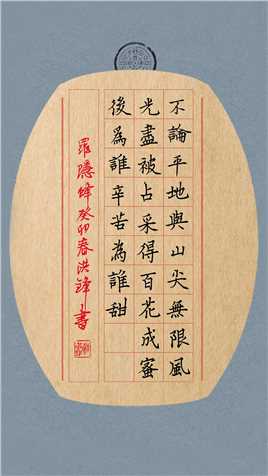 不論平地與山尖無限風
光盡被占采得百花成蜜
後為誰辛苦為誰甜
羅隱蜂癸卯春洪鋒書